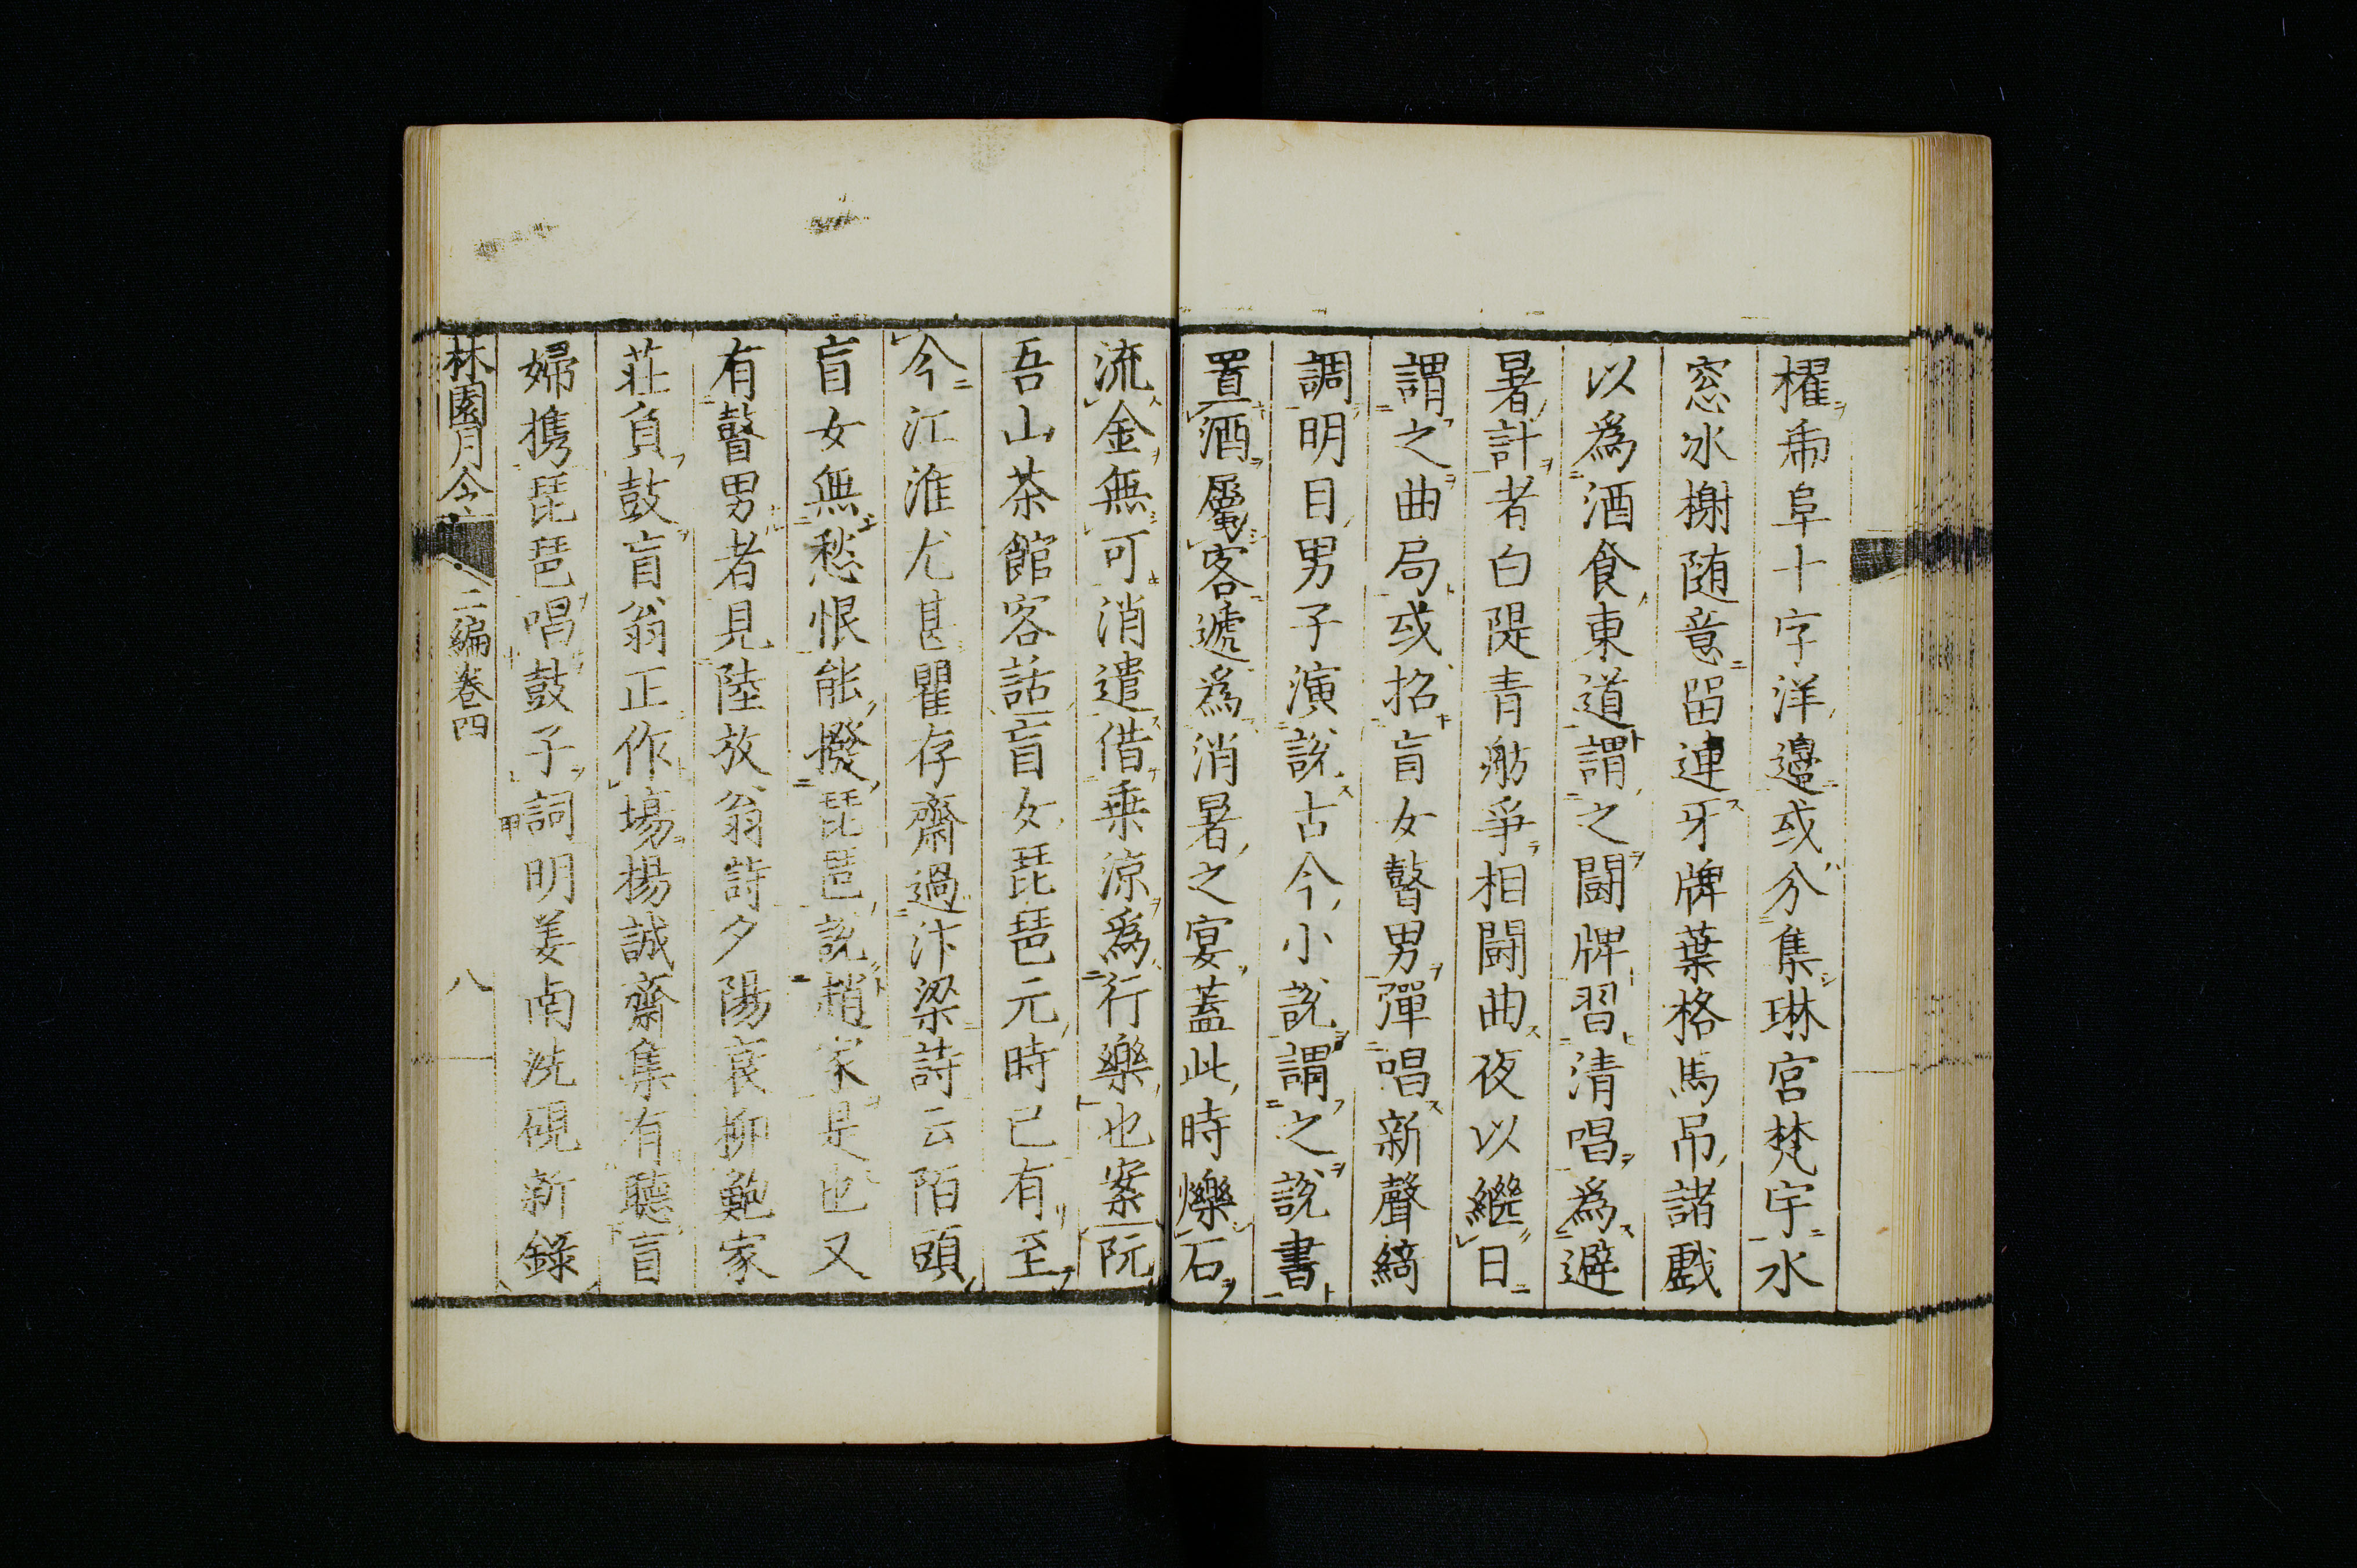 櫂希阜十字洋邉或分集琳宮梵宇水
窓冰榭随意留連牙牌葉格馬吊諸戲
以為酒食東道謂之鬪牌習清唱為避
暑計者白隄青舫爭相鬪曲夜以繼日
謂之曲局或招盲女瞽男彈唱新聲綺
調明目男子演說古今小說謂之說書
置酒屬客遞為消暑之宴蓋此時爍石
流金無可消遣借乗涼為行樂也案阮
吾山茶館客話盲女琵琶元時已有至
今江淮尤甚瞿存齋過汴梁詩云陌頭
盲女無愁恨能撥琵琶說趙家是也又
有瞽男者見陸放翁詩夕陽衰柳趙家
荘負鼓盲翁正作場楊誠齋集有聽盲
婦携琵琶唱鼓子詞明姜南洗硯新錄
林園月令 二編卷四 八